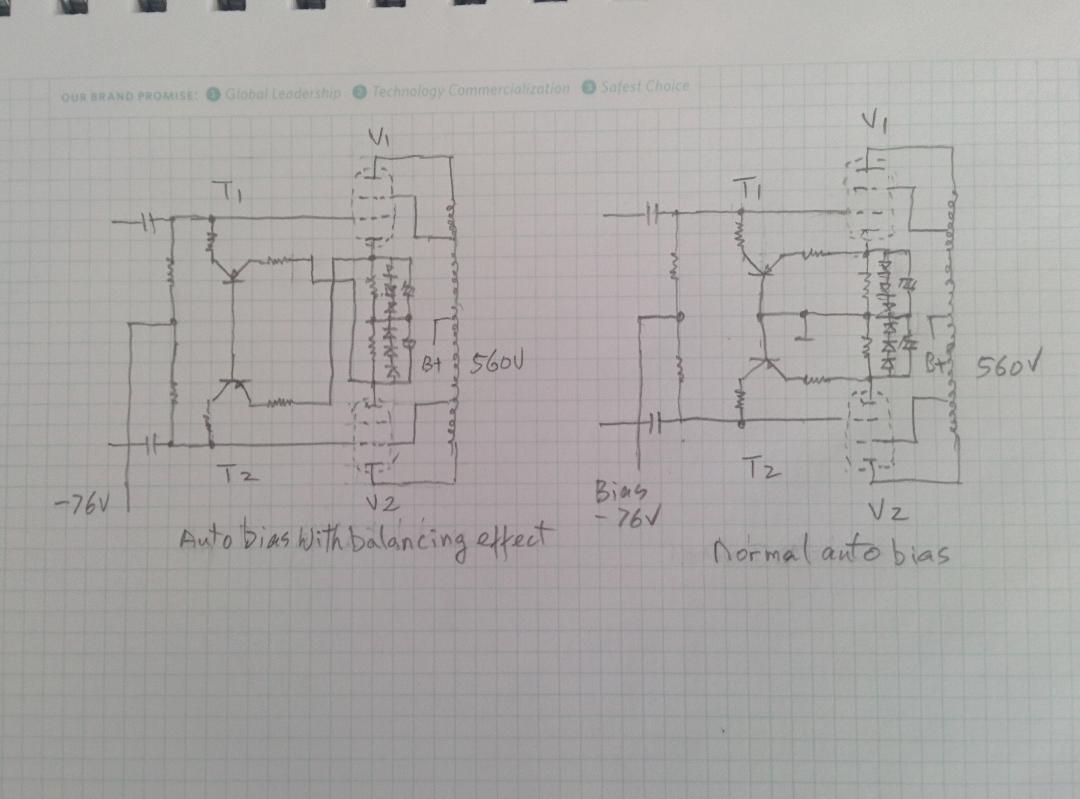 OUR BRAND PROMISE: 1 Global Leadership 2 Technology Commercialization 3 Safest Choice
V1
T1
B+
560V
T2
-76V
V2
Auto bias with balancing effect
V1
T1
B+
560V
T2
Bias
-76V
V2
normal auto bias